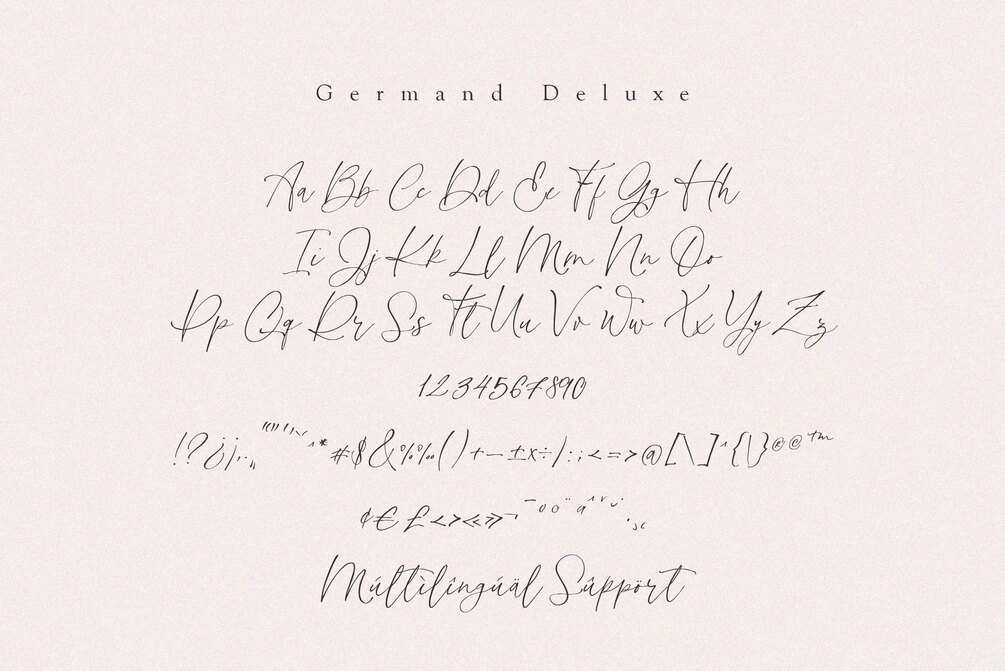 Germand Deluxe
Aa Bb Cc Dd Ee Ff Gg Hh
Ii Jj Kk Ll Mm Nn Oo
Pp Qq Rr Ss Tt Uu Vv Ww Xx Yy Zz
1234567890
!?¿¡ #$&%‰()+−±×÷/:;<=>@[\]^{|} ™
¢€£‹›«»¬
Múltìlîngúäl Sûppört